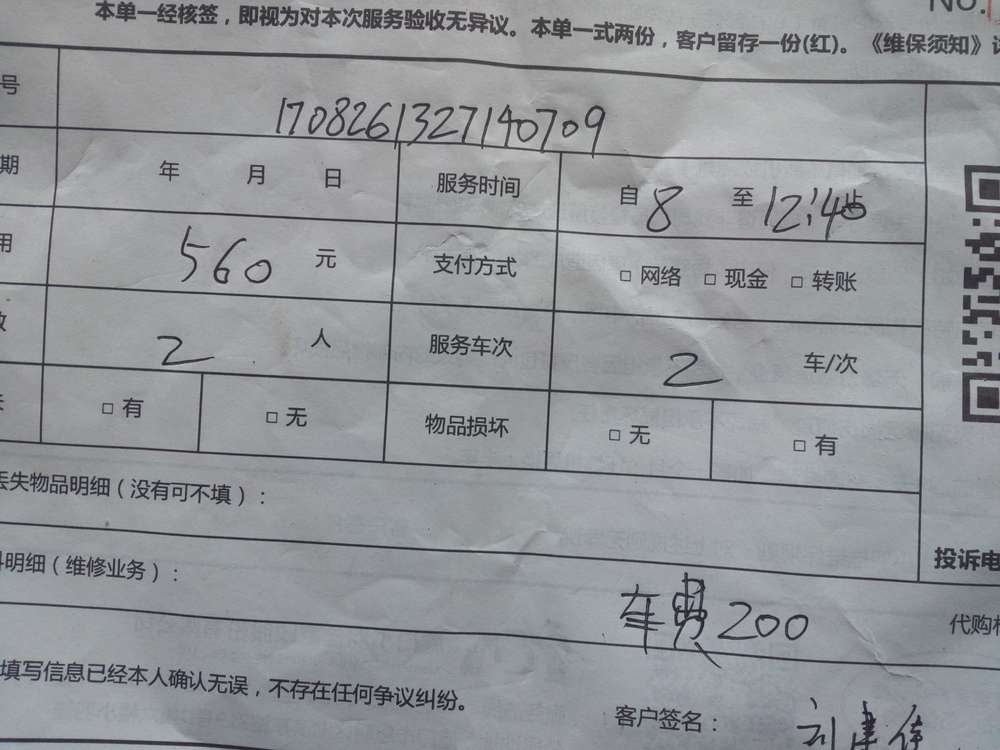 No.
本单一经核签，即视为对本次服务验收无异议。本单一式两份，客户留存一份(红)。《维保须知》
号 1708261327140709
期 年 月 日 服务时间 自 8 至 12:40
用 560 元 支付方式 □ 网络 □ 现金 □ 转账
数 2 人 服务车次 2 车/次
□ 有 □ 无 物品损坏 □ 无 □ 有
丢失物品明细（没有可不填）：
投诉电
料明细（维修业务）：
车费200
代购
填写信息已经本人确认无误，不存在任何争议纠纷。
客户签名：